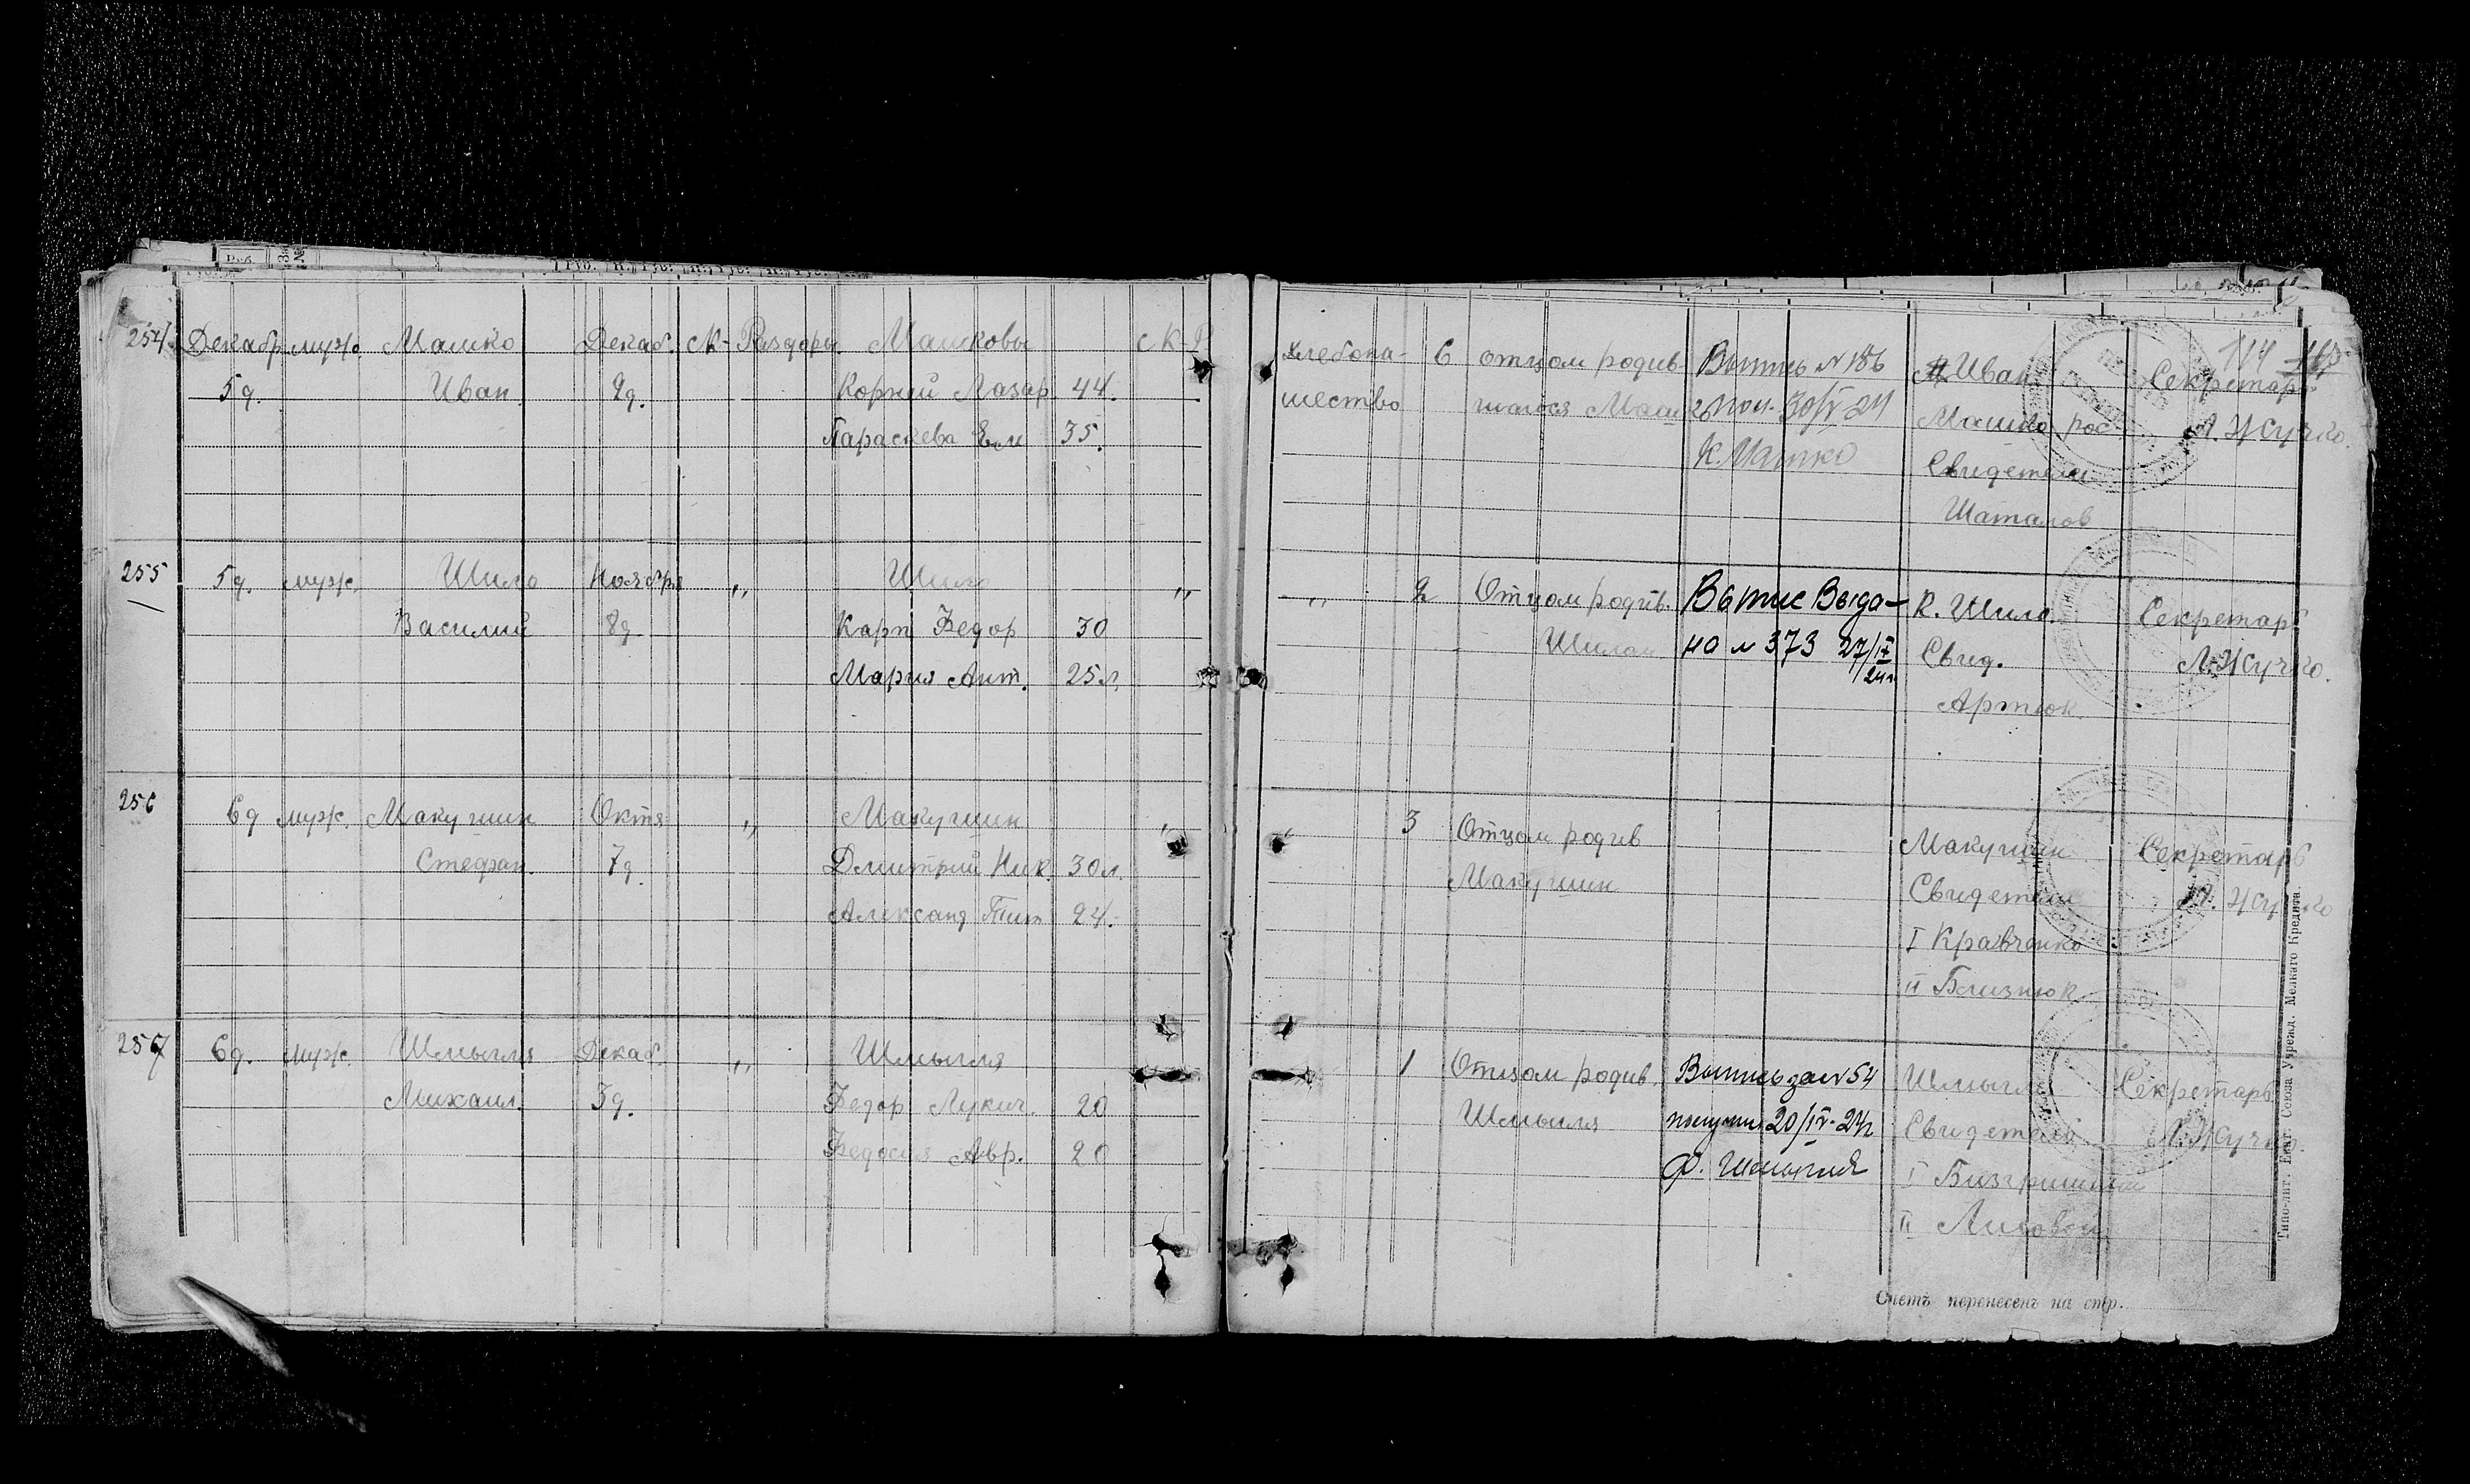 254 Декабр. муж. Машко Декаб. с К-Раздоры Машковы с К-Р
5д. Иван 2д. Корней Лазар. 44.
Параскева Ем 35.
255 5д. муж. Шило Ноября „ Шило „
Василий 8д Карп Федор 30
Мария Ант. 25л.
256 6д муж. Макушин Октя „ Макушин „
Стефан. 7д. Дмитрий Ник. 30л.
Александ Тит 24.
257 6д. муж. Шмыгля Декаб. „ Шмыгля
Михаил. 3д. Федор Лукич. 20
Федосия Авр. 20
114
хлебопа- 6 отцом родив- Выпись № 186 Иван Секретарь
шество шагося Маш 30/IV 24 Машко рос Л. Жучко.
К. Машко Свидетели
Шаталов
„ 2 Отцом родив. Выпис Выда- К. Шило. Секретарь
Шилом но № 373 27/IV 24г Свид. Л. Жучко.
Артюк.
„ 3 Отцом родив Макушин Секретарь
Макушин Свидетели Л. Жучко
I Кравченко
II Близнюк
1 Отцом родив. Выпись за № 54 Шмыгля Секретарь
Шмыгля получил 20/IV-24г Свидетели Л. Жучко
Ф. Шмыгля I
II
Типо-лит. Екат. Союза Учрежд. Мелкаго Кредита.
Счетъ перенесенъ на стр.